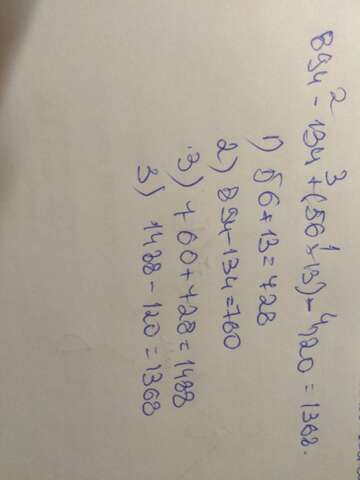 894 - 134 + (56 × 13) - 120 = 1368.
2 3 1 4
1) 56 × 13 = 728
2) 894 - 134 = 760
3) 760 + 728 = 1488
3) 1488 - 120 = 1368